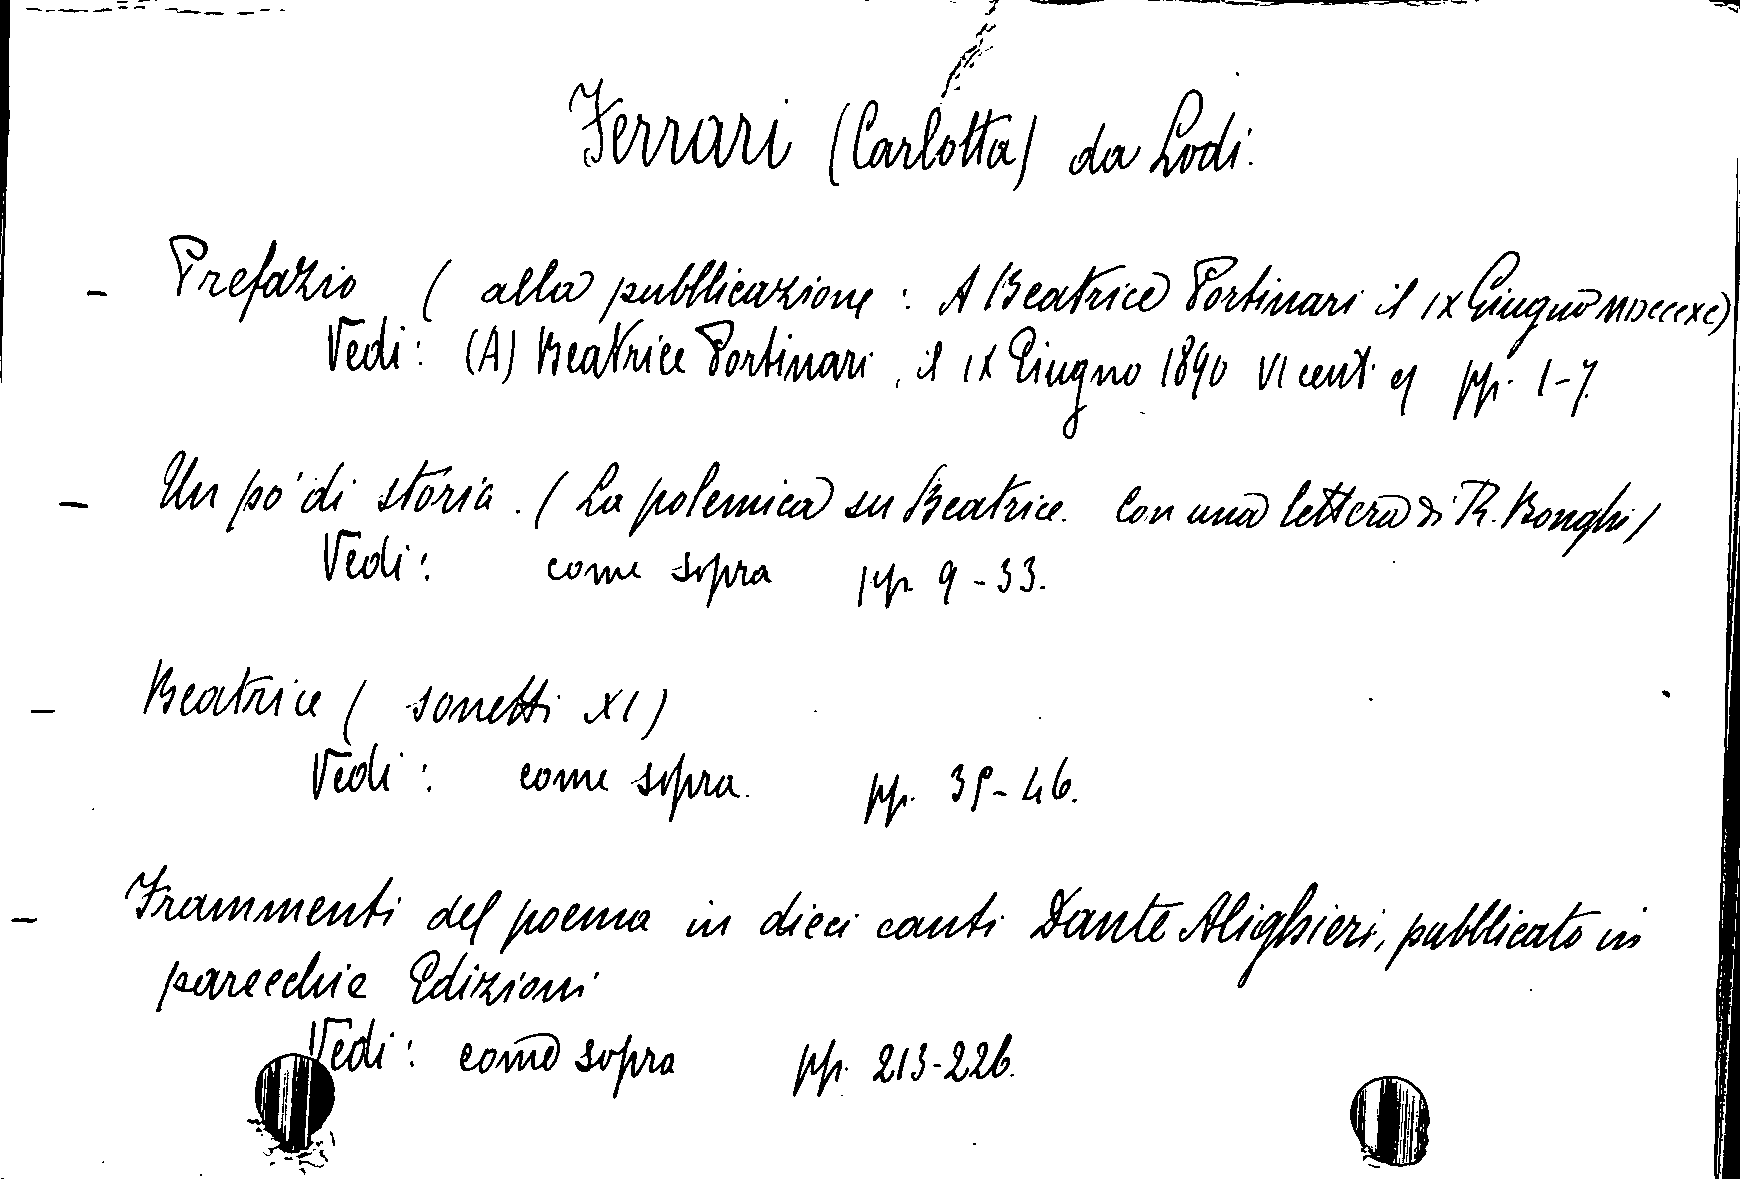 Ferrari (Carlotta) da Lodi.
- Prefazio ( alla pubblicazione : A Beatrice Portinari il IX Giugno MDCCCXC)
Vedi : (A) Beatrice Portinari, il IX Giugno 1890 VI cent. pp. 1-7.
- Un po' di storia . ( La polemica su Beatrice. Con una lettera di R. Bonghi)
Vedi : come sopra pp. 9-33.
- Beatrice ( sonetti XI)
Vedi : come sopra. pp. 35-46.
- Frammenti del poema in dieci canti Dante Alighieri, pubblicato in
parecchie Edizioni
Vedi : come sopra pp. 213-226.